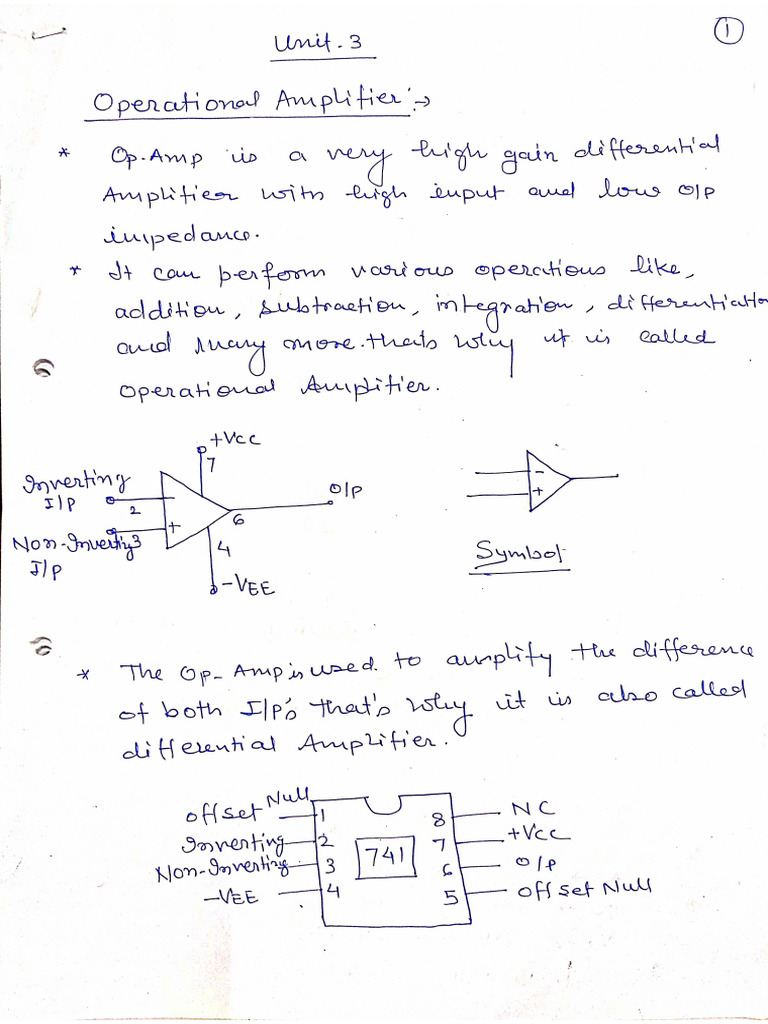 1
Unit.3
Operational Amplifier:→
* Op.Amp is a very high gain differential
Amplifier with high input and low O/P
impedance.
* It can perform various operations like,
addition, subtraction, integration, differentiation
and many more. that's why it is called
operational Amplifier.
+Vcc
7
Inverting
I/P
2
-
O/P
6
Non-Inverting 3
I/P
+
4
-VEE
-
+
Symbol
* The Op-Amp is used to amplify the difference
of both I/P's that's why it is also called
differential Amplifier.
offset Null 1
8 NC
Inverting 2
7 +Vcc
741
Non-Inverting 3
6 O/P
-VEE 4
5 offset Null